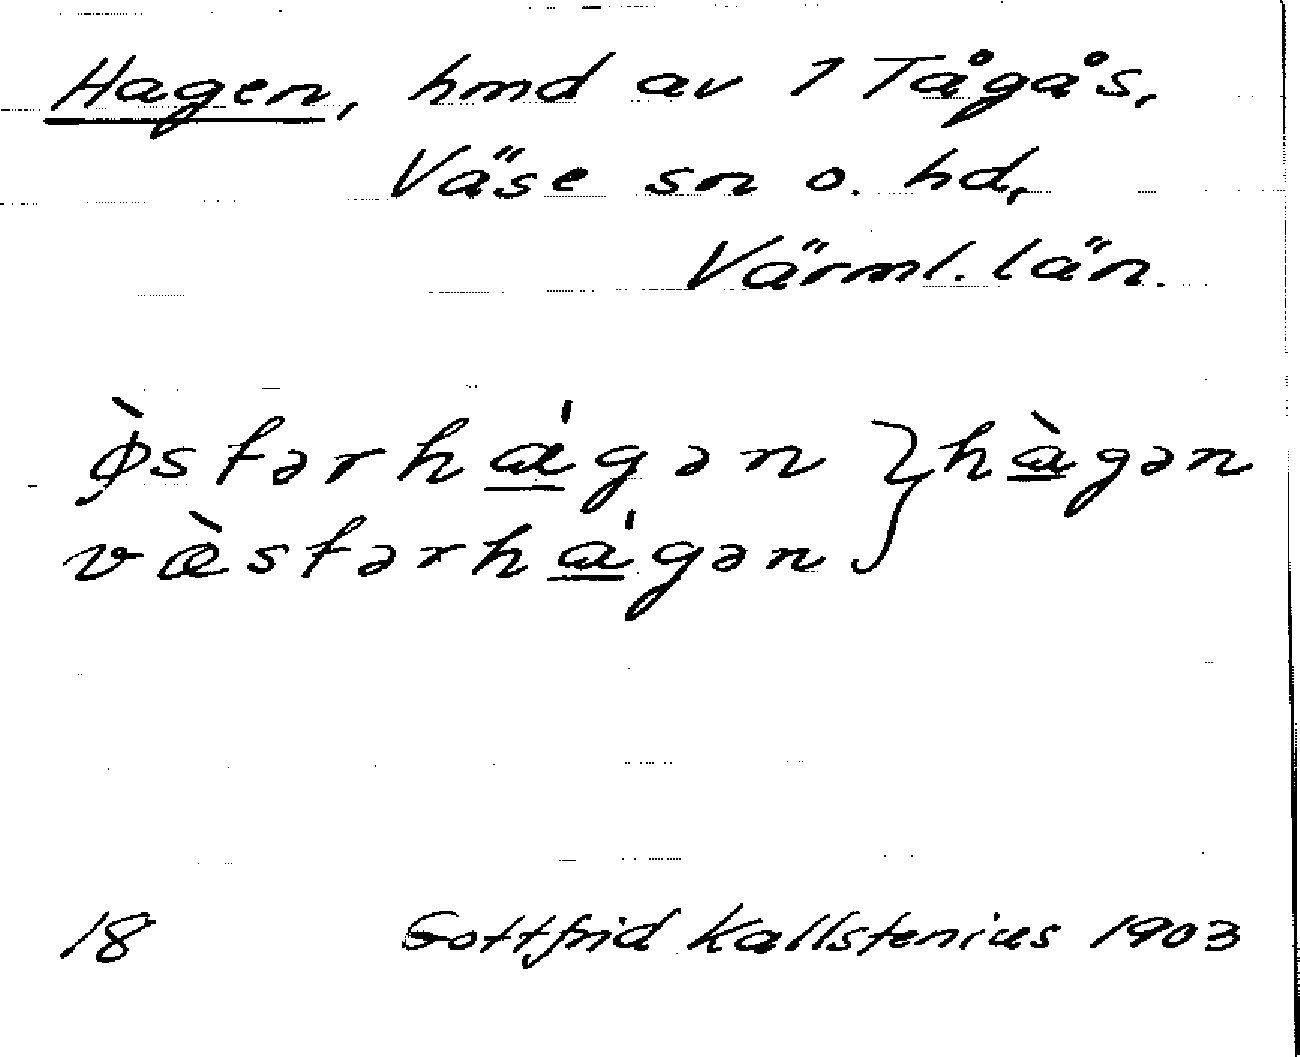 Hagen, hmd av 1 Tågås,
Väse sn o. hd,
Värml. län.
ø̀stərhágən } hàgən
væ̀stərhágən
18 Gottfrid Kallstenius 1903